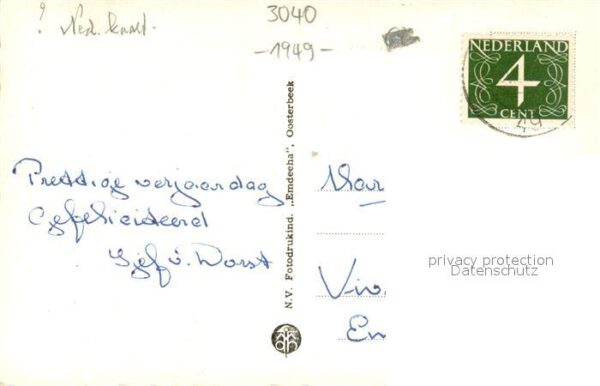 ? Ned. kaart.
3040
-1949-
NEDERLAND
4
CENT
49
Prettige verjaardag
Gefeliciteerd
v. Dorst
N.V. Fotodrukind. „Emdeeha", Oosterbeek
privacy protection
Datenschutz